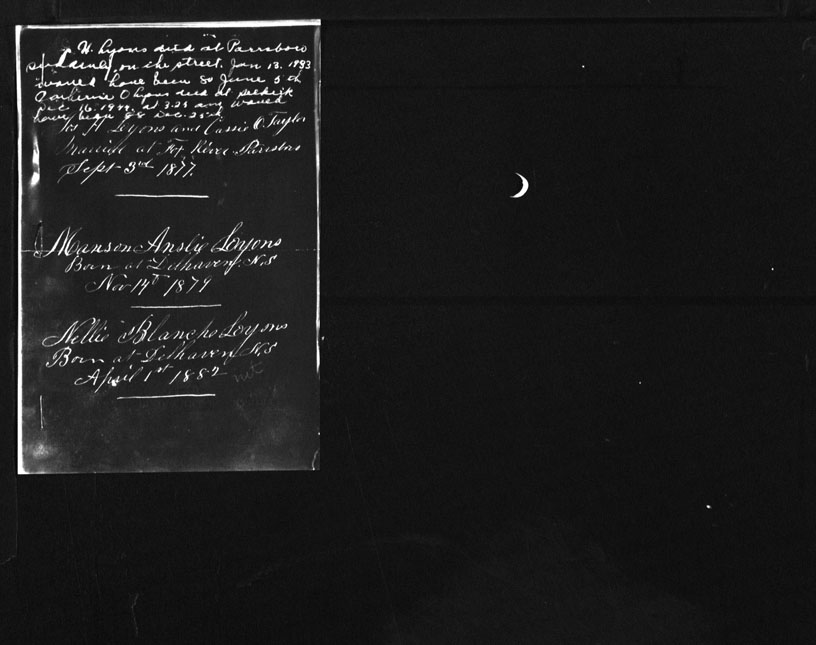 W. Lyons died at Parrsboro
suddenly on the street Jan 13. 1933
would have been 80 June 5th
Catherine O Lyons died at Selkirk
Dec 16. 1944. at 3.25 and would
have been 88 Dec. 25th
Jos H Lyons and Cassie O. Taylor
Married at Fox River Parrsboro
Sept 3rd 1877.
Manson Anslie Loyons
Born at Delhaven N,S
Nov 14th 1879
Nellie Blanche Loyons
Born at Delhaven N,S
April 1st 1882